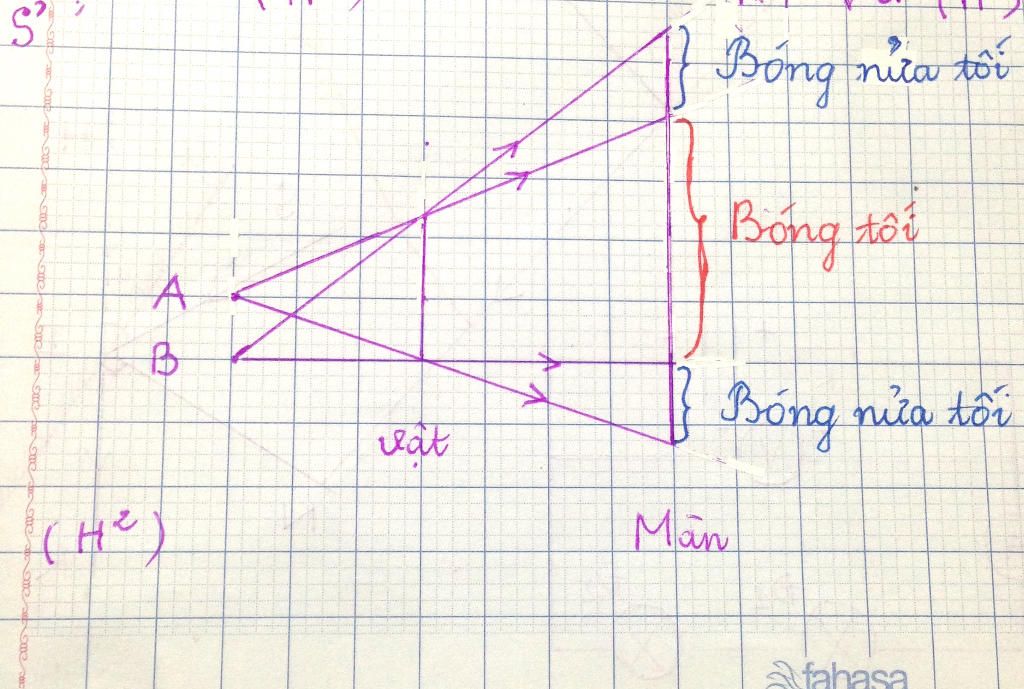 Bóng nửa tối
Bóng tối
A
B
Bóng nửa tối
vật
(H²)
Màn
fahasa